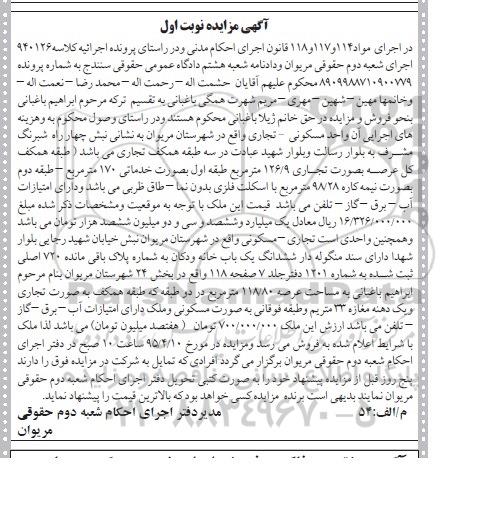 آگهی مزایده نوبت اول
در اجرای مواد۱۱۴و۱۱۷و۱۱۸ قانون اجرای احکام مدنی ودر راستای پرونده اجرائیه کلاسه۹۴۰۱۲۶
اجرای شعبه دوم حقوقی مریوان ودادنامه شعبه هشتم دادگاه عمومی حقوقی سنندج به شماره پرونده
۸۹۰۹۹۸۸۷۱۰۹۰۰۷۷۹محکوم علیهم آقایان حشمت اله –رحمت اله –محمد رضا –نعمت اله –
وخانمها مهین –شهین –مهری –مریم شهرت همگی باغبانی به تقسیم ترکه مرحوم ابراهیم باغبانی
بنحو فروش و مزایده درحق خانم ژیلا باغبانی محکوم هستند ودر راستای وصول محکوم به وهزینه
های اجرایی آن واحد مسکونی – تجاری واقع در شهرستان مریوان به نشانی نبش چهار راه شبرنگ
مشرف به بلوار رسالت وبلوار شهید عبادت در سه طبقه همکف تجاری می باشد ( طبقه همکف
کل عرصه بصورت تجاری ۱۲۶/۹ مترمربع طبقه اول بصورت خدماتی ۱۷۰ مترمربع –طبقه دوم
بصورت نیمه کاره ۹۸/۲۸ مترمربع با اسکلت فلزی بدون نما –طاق ظربی می باشد ودارای امتیازات
آب – برق –گاز –تلفن می باشد قیمت این ملک با توجه به موقعیت ومشخصات ذکر شده مبلغ
۱۶/۳۲۶/۰۰۰/۰۰۰ ریال معادل یک میلیارد وششصد و سی و دو میلیون ششصد هزار تومان می باشد
وهمچنین واحدی است تجاری –مسکونی واقع در شهرستان مریوان نبش خیابان شهید رجایی بلوار
شهدا دارای سند منگوله دار ششدانگ یک باب خانه ودکان به شماره پلاک باقی مانده ۷۲۰ اصلی
ثبت شده به شماره ۱۲۰۱ دفترجلد ۷ صفحه ۱۱۸ واقع در بخش ۲۴ شهرستان مریوان بنام مرحوم
ابراهیم باغبانی به مساحت عرصه ۱۱۸۸۰ مترمربع در دو طبقه که طبقه همکف به صورت تجاری
ویک دهنه مغازه ۳۳ متریم وطبقه فوقانی به صورت مسکونی وملک دارای امتیازات آب –برق –گاز
–تلفن می باشد ارزش این ملک ۷/۰۰۰/۰۰۰/۰۰۰ تومان ( هفتصد میلیون تومان) می باشد لذا ملک
با شرایط اعلام شده به فروش می رسد ومزایده در مورخ ۹۵/۴/۱۰ ساعت ۱۰ صبح در دفتر اجرای
احکام شعبه دوم حقوقی مریوان برگزار می گردد افرادی که تمایل به شرکت در مزایده فوق را دارند
پنج روز قبل از مزایده پیشنهاد خود را به صورت کتبی تحویل دفتر اجرای احکام شعبه دوم حقوقی
مریوان نمایند بدیهی است برنده مزایده کسی خواهد بود که بالاترین قیمت را پیشنهاد نماید.
م/الف:۵۴ مدیردفتر اجرای احکام شعبه دوم حقوقی
مریوان